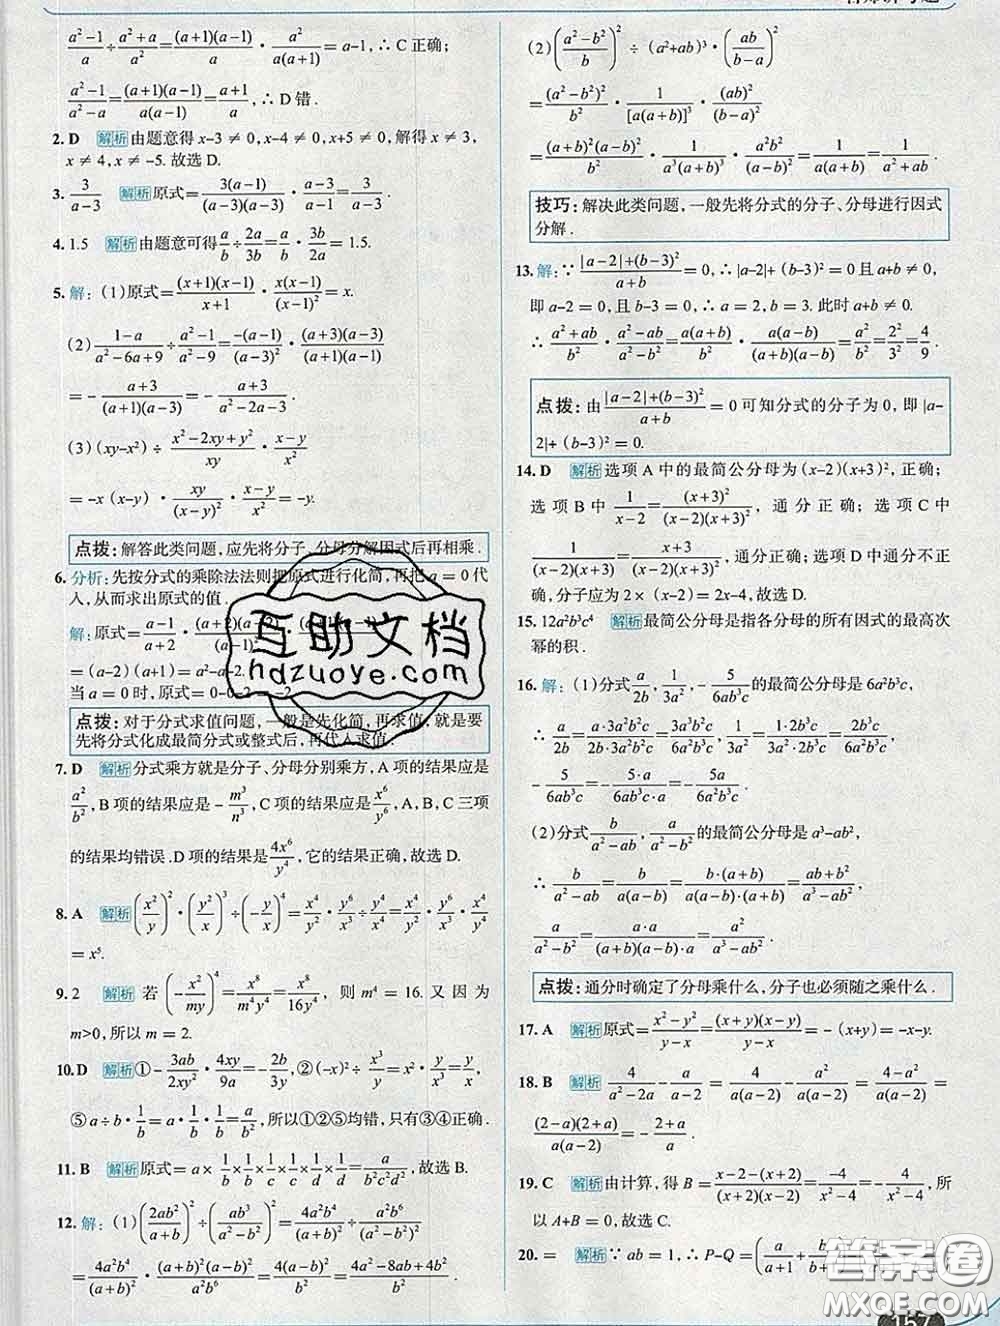 (a²-1)/a ÷ (a²+a)/a² = (a+1)(a-1)/a · a²/[a(a+1)] = a-1, ∴ C正确;
(a²-1)/(a²-a) = (a+1)(a-1)/[a(a-1)] = (a+1)/a, ∴ D错.
2. D 解析 由题意得 x-3≠0, x-4≠0, x+5≠0, 解得 x≠3,
x≠4, x≠-5. 故选D.
3. 3/(a-3) 解析 原式 = 3(a-1)/[(a-3)(a-3)] · (a-3)/(a-1) = 3/(a-3).
4. 1.5 解析 由题意可得 a/b ÷ 2a/3b = a/b · 3b/2a = 1.5.
5. 解: (1)原式 = (x+1)(x-1)/(x+1) · x(x-1)/(x-1)² = x.
(2) (1-a)/(a²-6a+9) ÷ (a²-1)/(a²-9) = -(a-1)/(a-3)² · (a+3)(a-3)/[(a+1)(a-1)]
= -(a+3)/[(a+1)(a-3)] = -(a+3)/(a²-2a-3).
(3) (xy-x²) ÷ (x²-2xy+y²)/xy · (x-y)/x²
= -x(x-y) · xy/(x-y)² · (x-y)/x² = -y.
点拨: 解答此类问题, 应先将分子、分母分解因式后再相乘.
6. 分析: 先按分式的乘除法法则把原式进行化简, 再把 a=0 代
入, 从而求出原式的值.
解: 原式 = (a-1)/(a+2) · (a+2)(a-2)/(a-1)² ·
= (a-2)(a+1) = a²-a-2.
当 a=0 时, 原式 = 0-0-2 = -2.
点拨: 对于分式求值问题, 一般是先化简, 再求值, 就是要
先将分式化成最简分式或整式后, 再代入求值.
7. D 解析 分式乘方就是分子、分母分别乘方, A项的结果应是
a²/b², B项的结果应是 -m³/n³, C项的结果应是 x⁶/y⁶, A, B, C三项
的结果均错误. D项的结果是 4x⁶/y⁴, 它的结果正确, 故选D.
8. A 解析 (x²/y)² · (y²/x)³ ÷ (-y/x)⁴ = x⁴/y² · y⁶/x³ ÷ y⁴/x⁴ = x⁴/y² · y⁶/x³ · x⁴/y⁴
= x⁵.
9. 2 解析 若 (-x²/my)⁴ = x⁸/m⁴y⁴ = x⁸/16y⁴, 则 m⁴=16. 又因为
m>0, 所以 m=2.
10. D 解析 ① -3ab/2xy² · 4xy/9a = -2b/3y, ② (-x)² ÷ x³/y = x² · y/x³ = y/x,
⑤ a÷b·1/b = a·1/b·1/b = a/b², 所以①②⑤均错, 只有③④正确.
11. B 解析 原式 = a×1/b×1/b×1/c×1/c×1/d×1/d = a/(b²c²d²), 故选B.
12. 解: (1) (2ab²/(a+b))² ÷ (ab³/(a²-b²))² = 4a²b⁴/(a+b)² ÷ a²b⁶/(a²-b²)²
= 4a²b⁴/(a+b)² · (a+b)²(a-b)²/a²b⁶ = 4(a-b)²/b² = (4a²-8ab+4b²)/b².
(2) ((a²-b²)/b)² ÷ (a²+ab)³ · (ab/(b-a))²
= (a²-b²)²/b² · 1/[a(a+b)]³ · (ab)²/(b-a)²
= (a+b)²(a-b)²/b² · 1/[a³(a+b)³] · a²b²/(a-b)² = 1/[a(a+b)] = 1/(a²+ab).
技巧: 解决此类问题, 一般先将分式的分子、分母进行因式
分解.
13. 解: ∵ [|a-2|+(b-3)²]/(a+b) = 0, ∴ |a-2|+(b-3)²=0 且 a+b≠0,
即 a-2=0, 且 b-3=0, ∴ a=2, b=3. 此时 a+b≠0.
∴ (a²+ab)/b² · (a²-ab)/(a²-b²) = a(a+b)/b² · a(a-b)/[(a+b)(a-b)] = a²/b² = 2²/3² = 4/9.
点拨: 由 [|a-2|+(b-3)²]/(a+b) = 0 可知分式的分子为0, 即 |a-
2|+(b-3)²=0.
14. D 解析 选项A中的最简公分母为 (x-2)(x+3)², 正确;
选项B中 1/(x-2) = (x+3)²/[(x-2)(x+3)²], 通分正确; 选项C中
1/[(x-2)(x+3)] = (x+3)/[(x-2)(x+3)²], 通分正确; 选项D中通分不正
确, 分子应为 2×(x-2) = 2x-4, 故选D.
15. 12a²b³c⁴ 解析 最简公分母是指各分母的所有因式的最高次
幂的积.
16. 解: (1)分式 a/2b, 1/3a², -5/6ab³c 的最简公分母是 6a²b³c,
∴ a/2b = a·3a²b²c/2b·3a²b²c = 3a³b²c/6a²b³c, 1/3a² = 1·2b³c/3a²·2b³c = 2b³c/6a²b³c,
-5/6ab³c = -5·a/6ab³c·a = -5a/6a²b³c.
(2)分式 b/(a²-ab), a/(a²-b²) 的最简公分母是 a³-ab²,
∴ b/(a²-ab) = b/[a(a-b)] = b·(a+b)/[a(a-b)·(a+b)] = (ab+b²)/(a³-ab²),
a/(a²-b²) = a·a/[(a+b)(a-b)·a] = a²/(a³-ab²).
点拨: 通分时确定了分母乘什么, 分子也必须随之乘什么.
17. A 解析 原式 = (x²-y²)/(y-x) = (x+y)(x-y)/(y-x) = -(x+y) = -x-y.
18. B 解析 4/(a²-2a) - a/(a-2) = 4/[a(a-2)] - a²/[a(a-2)] = (4-a²)/[a(a-2)] =
(2-a)(2+a)/[a(a-2)] = -(2+a)/a.
19. C 解析 由计算, 得 B = [x-2-(x+2)]/[(x+2)(x-2)] = -4/(x²-4) = -4/(x²-4), 所
以 A+B=0, 故选C.
20. = 解析 ∵ ab=1, ∴ P-Q = (a/(a+1) + b/(b+
互助文档
hdzuoye.com
答案圈
MXQE.COM
157